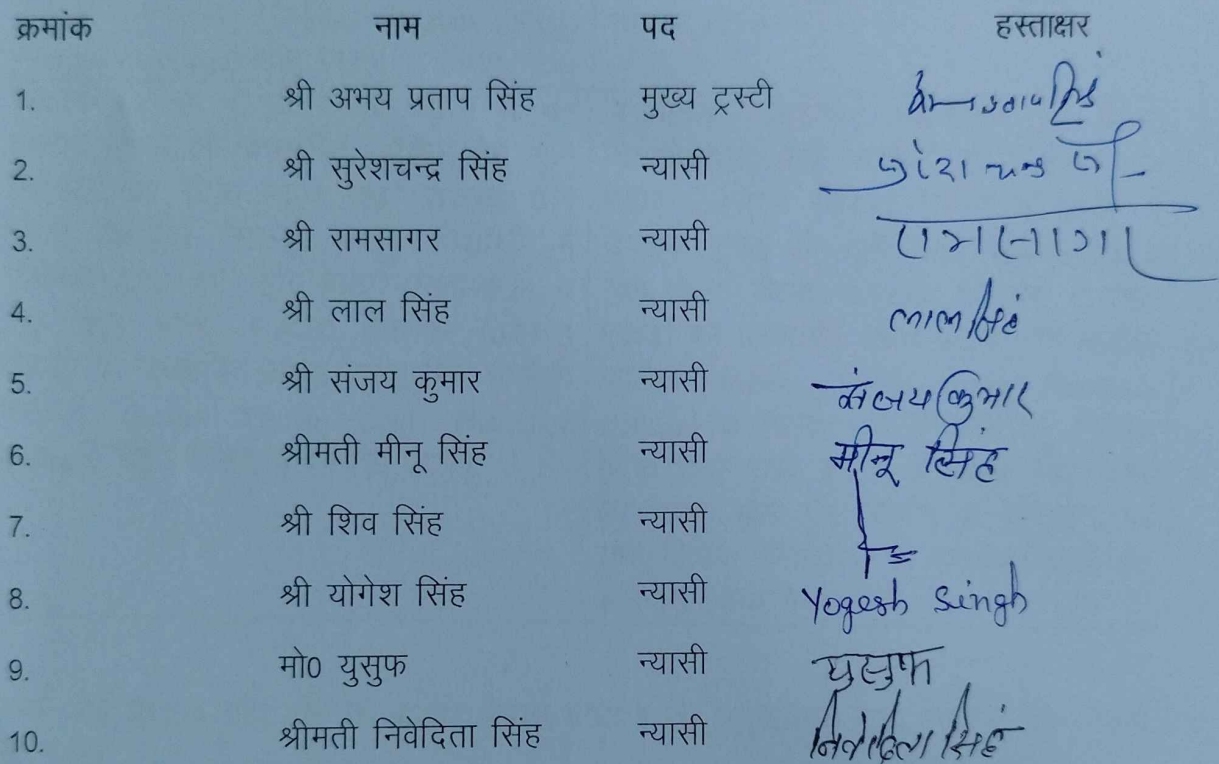 क्रमांक नाम पद हस्ताक्षर
1. श्री अभय प्रताप सिंह मुख्य ट्रस्टी
2. श्री सुरेशचन्द्र सिंह न्यासी
3. श्री रामसागर न्यासी रामसागर
4. श्री लाल सिंह न्यासी लाल सिंह
5. श्री संजय कुमार न्यासी संजय कुमार
6. श्रीमती मीनू सिंह न्यासी मीनू सिंह
7. श्री शिव सिंह न्यासी
8. श्री योगेश सिंह न्यासी Yogesh Singh
9. मो0 युसुफ न्यासी युसुफ
10. श्रीमती निवेदिता सिंह न्यासी निवेदिता सिंह